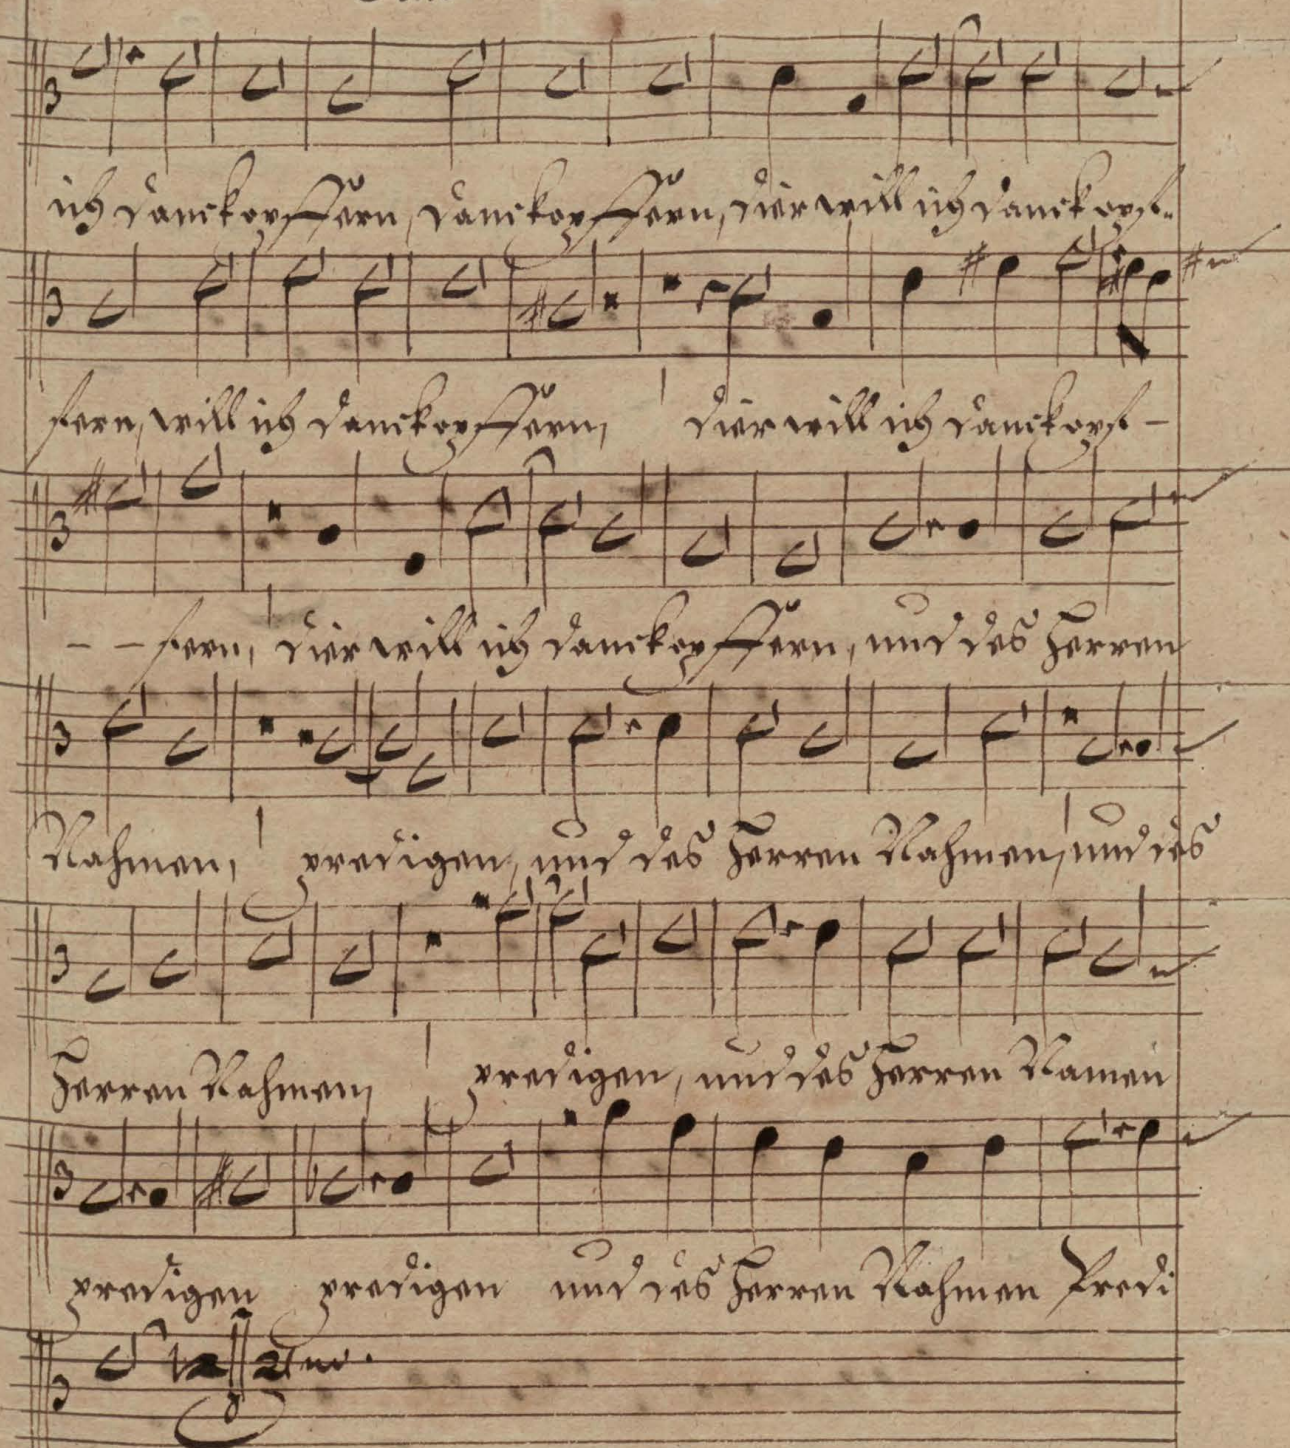 ich danckopffern, danckopffern, dier will ich danckopf-
fern, will ich danckopffern, dier will ich danckopf-
- - fern, dier will ich danckopffern, und des Herren
Nahmen, predigen, und des Herren Nahmen, und des
Herren Nahmen, predigen, und des Herren Namen
predigen predigen und des Herren Nahmen Predi